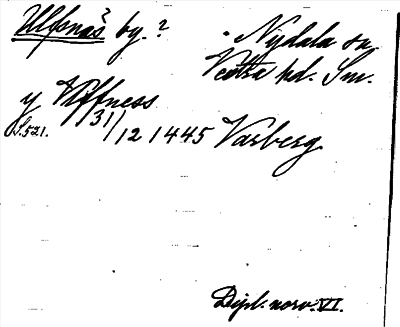 Ulfsnäs? by.?
Nydala sn
Västra hd. Sm.
y Vlffness
S. 521. 31/12 1445 Varberg.
Dipl. norv. VI.